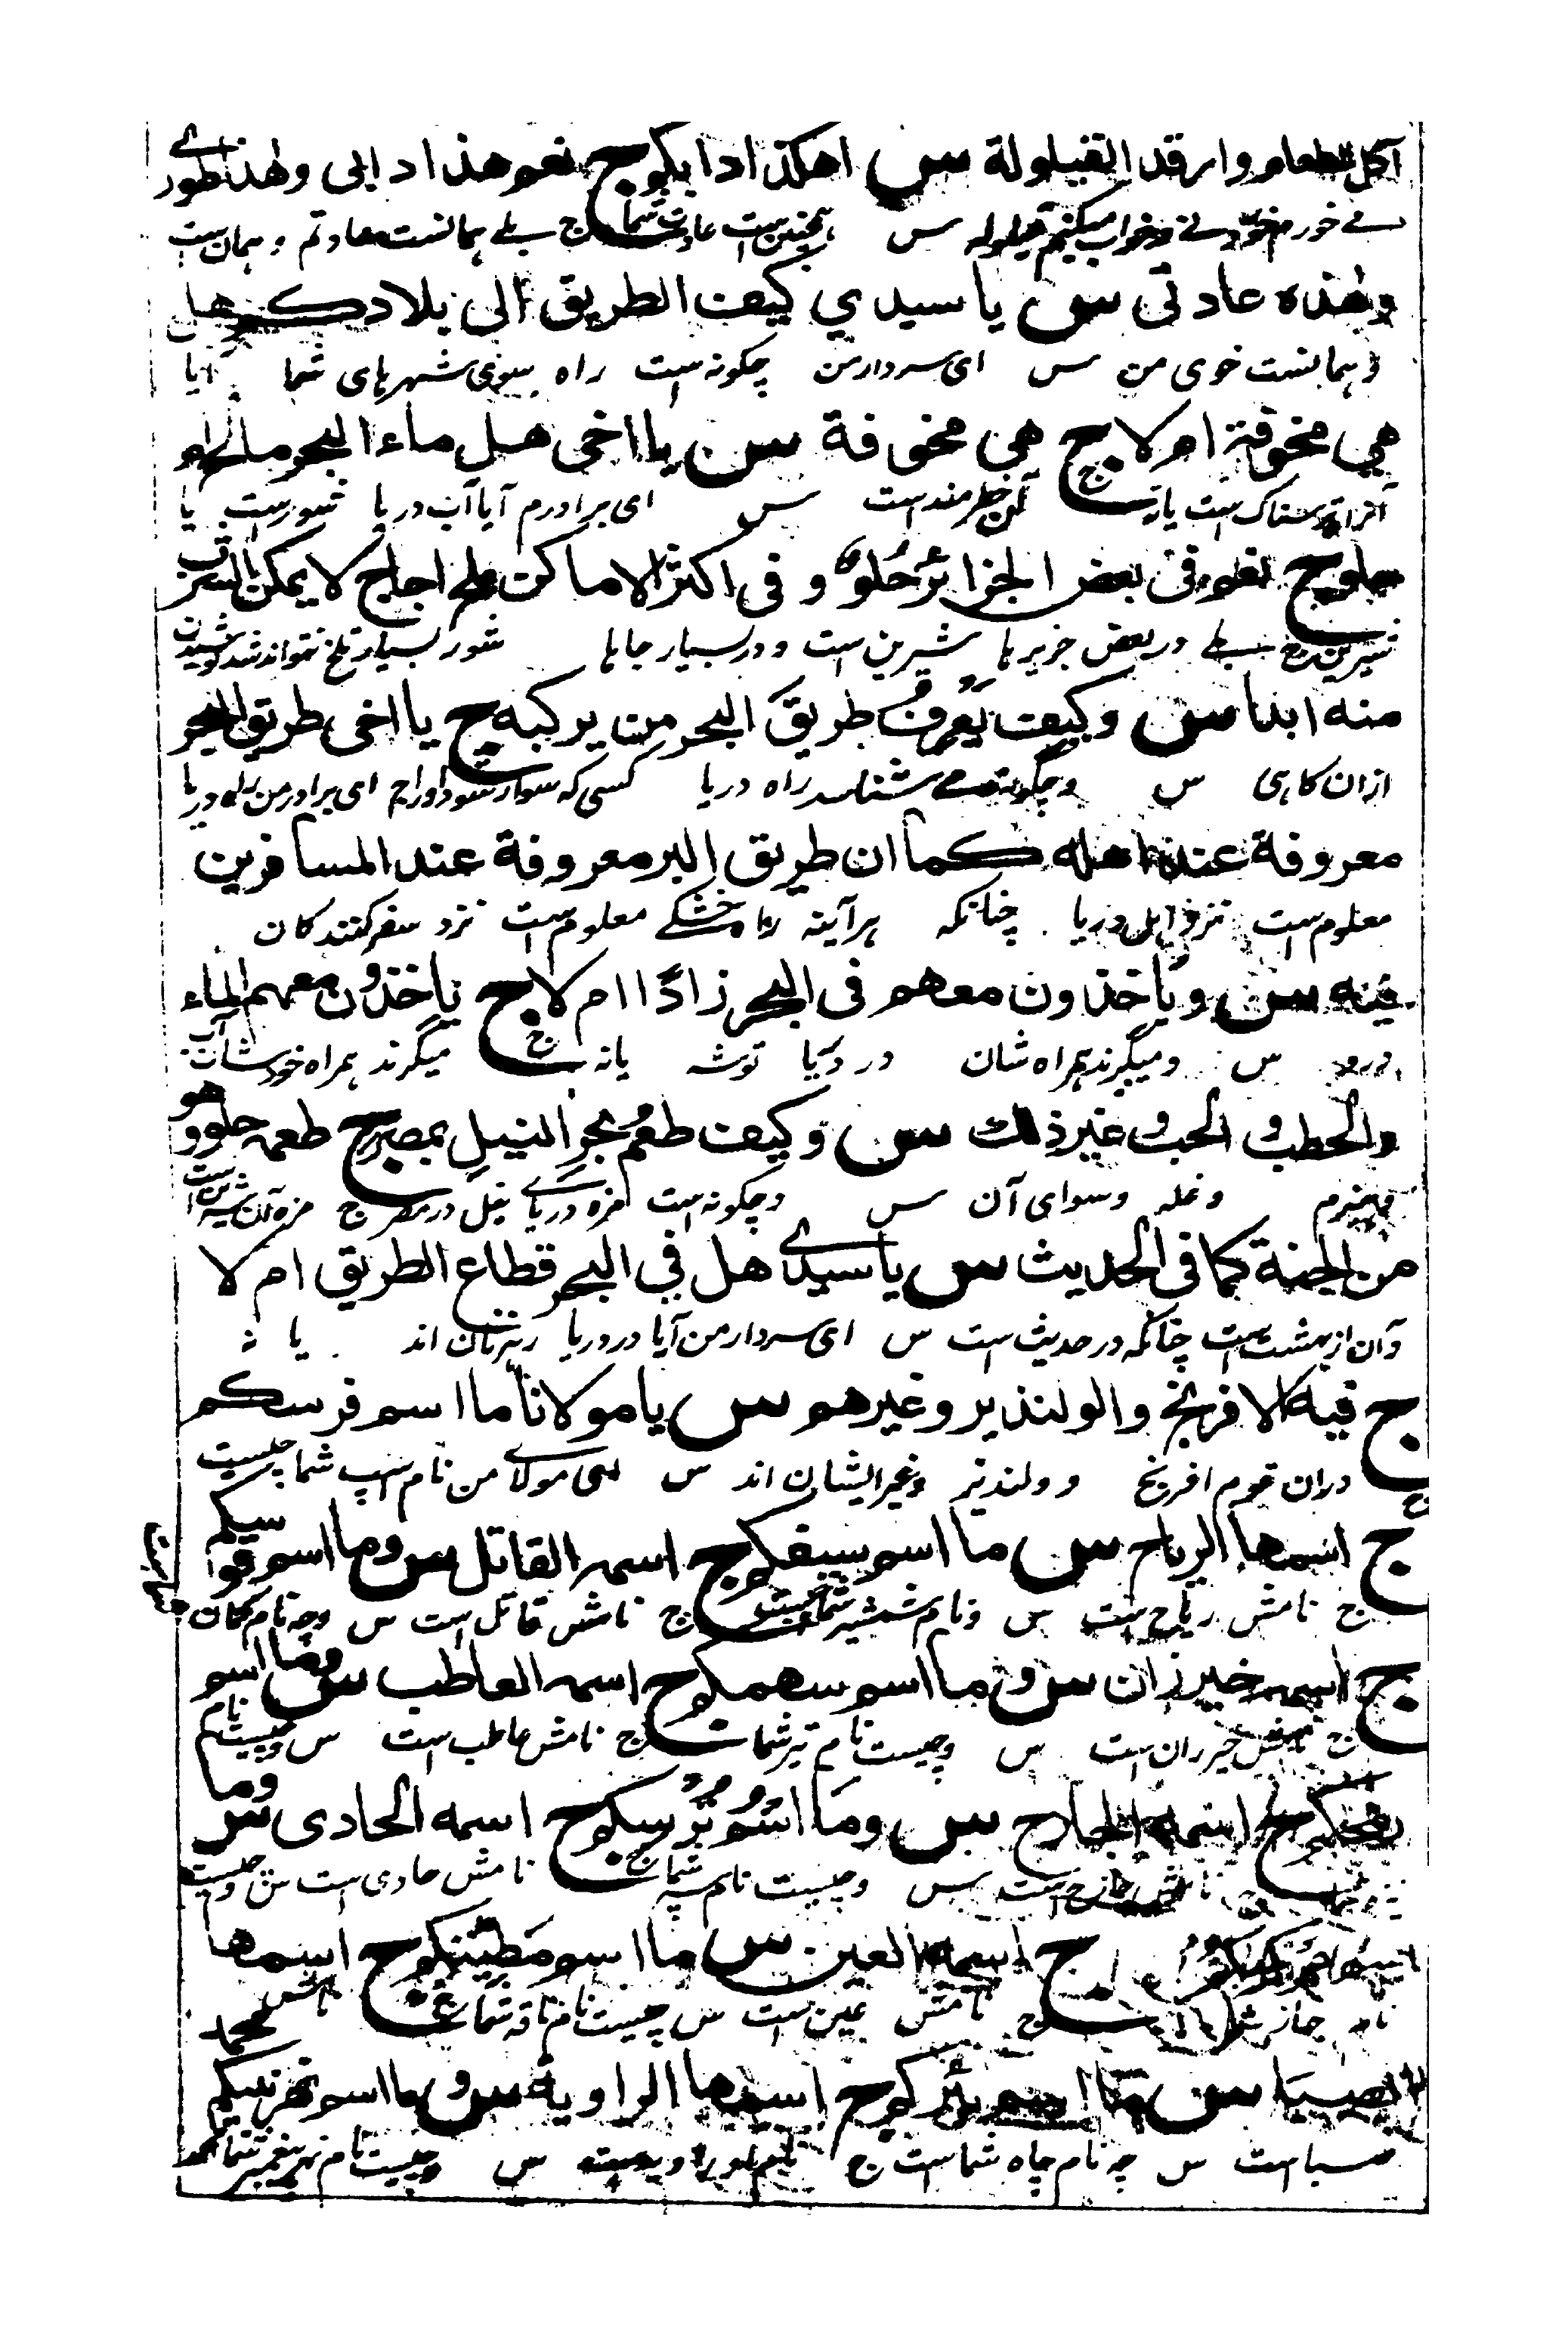 آكل الطعام وارقد القيلولة س اهكذا دابكم ج نعم هذا دابى وهذا طورے
مے خورم خوردنے وخواب ميكنم قيلوله س همچنين است عادت شما ج بلے همانست عادتم و همان است
وهذه عادتى س يا سيدي كيف الطريق الى بلادكم هل
و همانست خوى من س اى سردار من چگونه است راه بسوى شهرهاى شما آيا
هي مخوفة ام لا ج هي مخوفة س يا اخى هل ماء البحر مالح ام
آنراه ترسناك است يا نه ج آن خطرمند است س اى برادرم آيا آب دريا شور است يا
حلو ج نعم فى بعض الجزائر حلو و فى اكثر الاماكن ملح اجاج لا يمكن الشرب
شيرين ج بلے در بعض جزيرها شيرين است و در بسيار جاها شور بسيار تلخ نتواند شد نوشيدن
منه ابدا س وكيف يعرف طريق البحر من يركبه ج يا اخى طريق البحر
ازان گاهى س وچگونه مے شناسد راه دريا كسى كه سوار شود اورا ج اى برادر من راه دريا
معروفة عند اهله كما ان طريق البر معروفة عند المسافرين
معلوم است نزد اهل دريا چنانكه هر آينه راه خشكے معلوم است نزد سفر كنندگان
فيه س وياخذون معهم فى البحر زادًا ام لا ج ياخذون معهم الماء
درو س و ميگيرند همراه شان در دريا توشه يا نه ج ميگيرند همراه خود شان آب
والحطب و الحب و غير ذلك س وكيف طعم بحر النيل بمصر ج طعمه حلو وهو
وهيزم و غله و سواى آن س وچگونه است مزه درياے نيل در مصر ج مزه آن شيرين است
من الجنة كما فى الحديث س يا سيدے هل في البحر قطاع الطريق ام لا
و آن از بهشت است چنانكه در حديث است س اى سردار من آيا در دريا رهزنان اند يا نه
ج فيه الافرنج والولنديز وغيرهم س يا مولانا ما اسم فرسكم
ج دران قوم افرنج و ولنديز و غير ايشان اند س اى مولاے من نام اسپ شما چيست
ج اسمها الرياح س ما اسم سيفكم ج اسمه القاتل س وما اسم قوسكم
ج نامش رياح است س ونام شمشير شما چيست ج نامش قاتل است س وچه نام كمان
ج اسمه خيزران س وما اسم سهمكم ج اسمه العاطب س وما اسم
ج نامش خيزران است س وچيست نام تير شما ج نامش عاطب است س وچيست نام
رمحكم ج اسمه س وما اسم ترسكم ج اسمه الحادى س وما
ج نامش است س وچيست نام سپر شما ج نامش حادى است س وچيست
اسم ج اسمه العين س ما اسم مطيتكم ج اسمها
نام ج نامش عين است س چيست نام ناقه شما ج نامش
الصبا س ما اسم بئركم ج اسمها الراوية س وما اسم نبيكم محمد
صبا است س چه نام چاه شما است ج س وچيست نام پيغمبر شما محمد